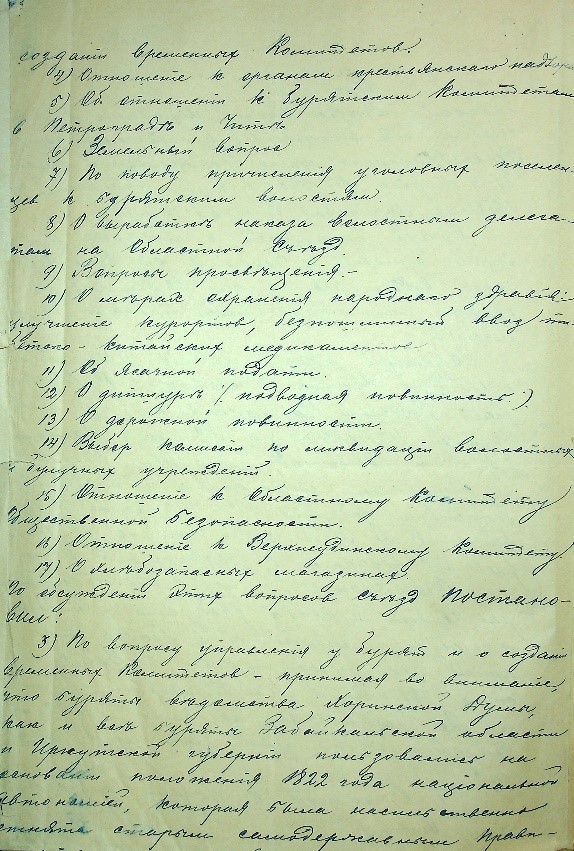 созданіи временныхъ Комитетовъ.
4) Отношеніе къ органамъ крестьянскаго надзора
5) Объ отношеніи къ бурятскимъ Комитетамъ
въ Петроградѣ и Читѣ
6) Земельный вопросъ
7) По поводу причисленія уголовныхъ поселен-
цевъ къ бурятскимъ волостямъ.
8) О выработкѣ наказа волостнымъ делега-
тамъ на Областной Съѣздъ.
9) Вопросы просвѣщенія.-
10) О мѣрахъ охраненія народнаго здравія:
улучшеніе курортовъ, безпошлинный ввозъ ти-
бетско-китайскихъ медикаментовъ
11) Объ Ясачной подати.
12) О (подводная повинность.)
13) О дорожной повинности.
14) Выборъ комисіи по ликвидаціи волостныхъ
и булучныхъ учрежденій
15) Отношеніе къ Областному Комитету
Общественной Безопасности.
16) Отношеніе къ Верхнеудинскому Комитету.
17) О хлѣбозапасныхъ магазинахъ.
По обсужденіи этихъ вопросовъ Съѣздъ Постано-
вилъ:
3) По вопросу управленія у бурятъ и о созданіи
временныхъ Комитетовъ - принимая во вниманіе,
что буряты вѣдомства Хоринской Думы,
какъ и всѣ буряты Забайкальской области
и Иркутской губерніи пользовались на
основаніи положенія 1822 года національной
автономіей, которая была насильственно
отнята старымъ самодержавнымъ Прави-